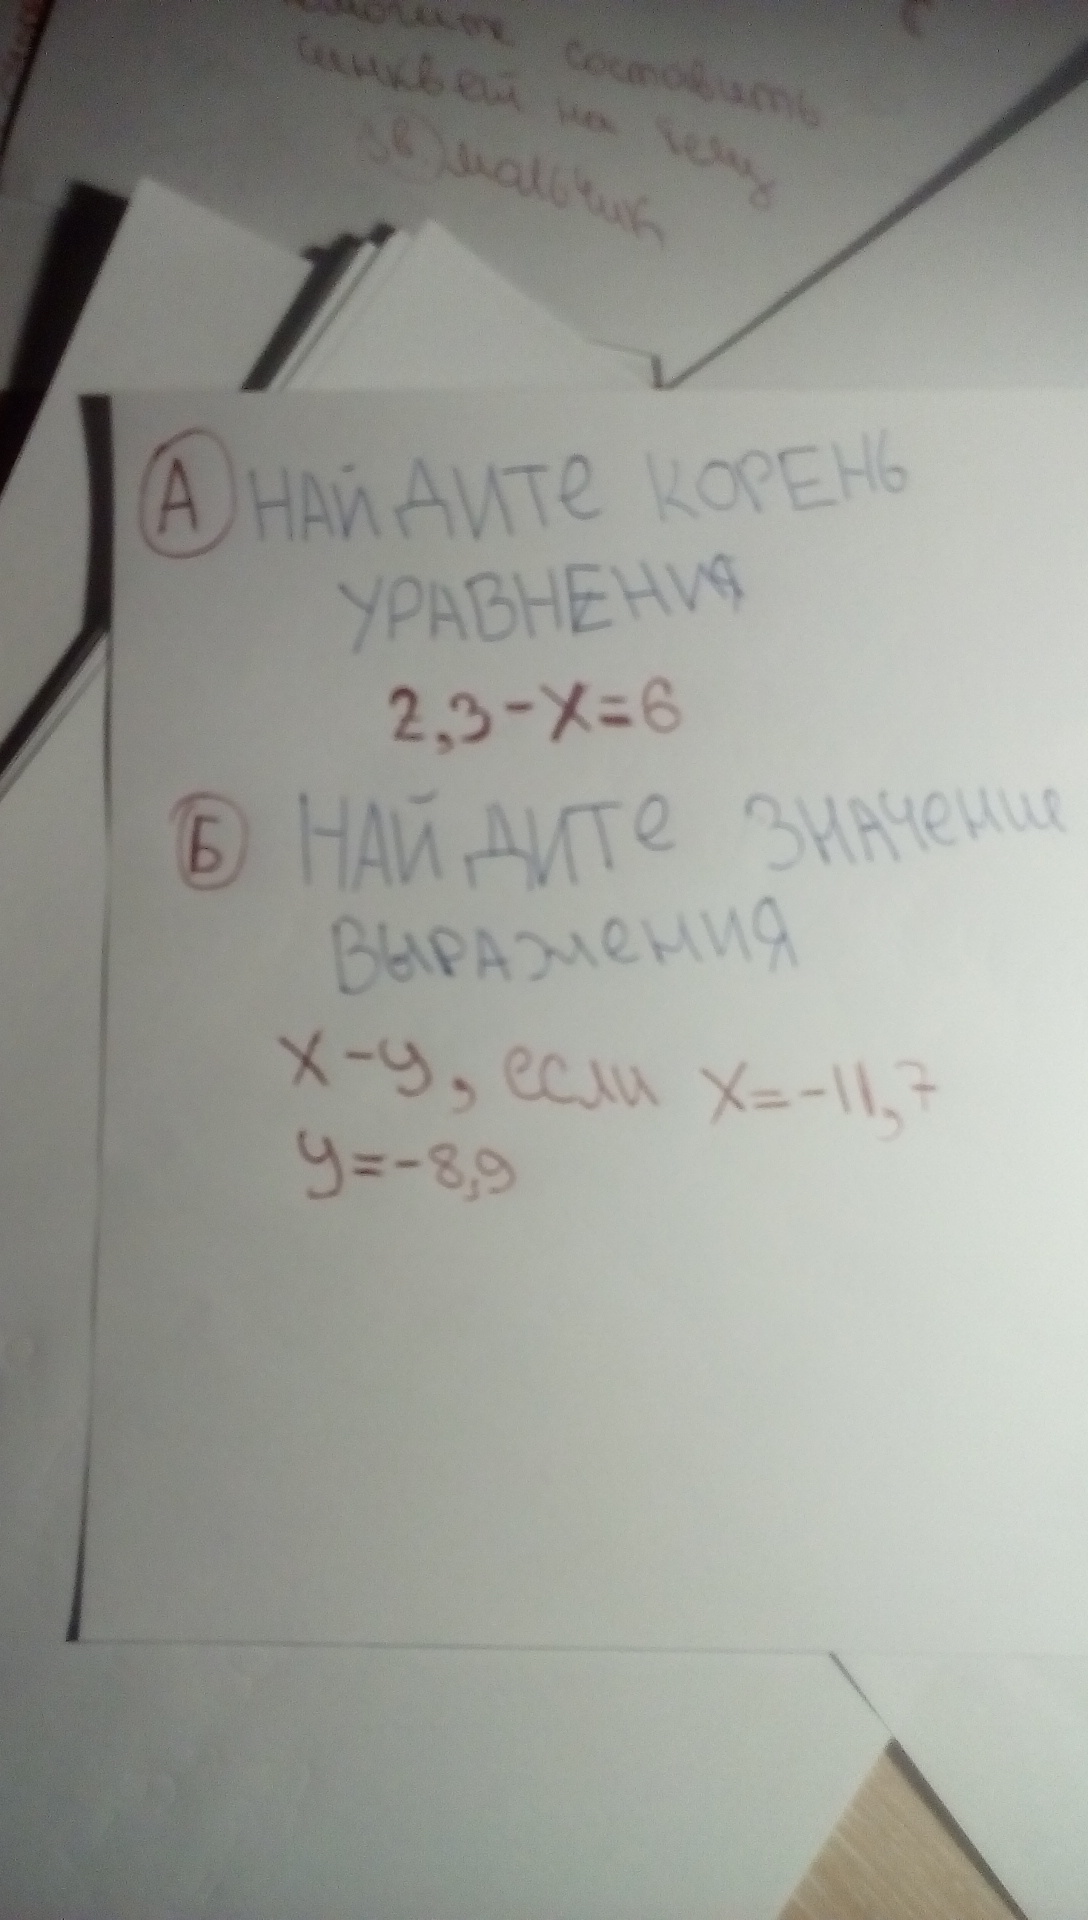 составить
синквейн на тему
мальчик
А НАЙДИТЕ КОРЕНЬ
УРАВНЕНИЯ
2,3-X=6
Б НАЙДИТЕ ЗНАЧЕНИЕ
ВЫРАЖЕНИЯ
X-y, если X=-11,7
y=-8,9